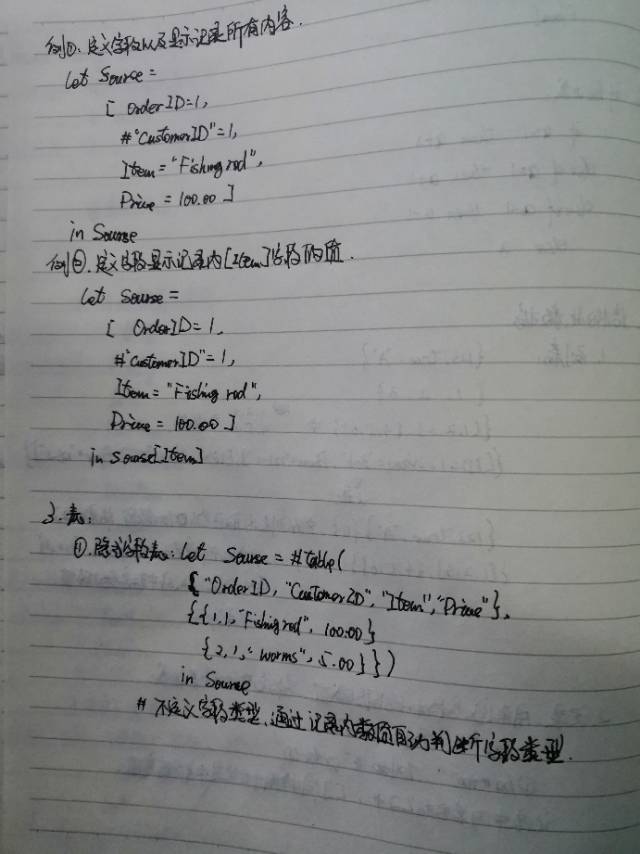 例①. 定义字段以及显示记录所有内容.
let Source =
[ OrderID=1,
#"CustomerID"=1,
Item="Fishing rod",
Prine = 100.00 ]
in Source
例②. 定义字段显示记录内[Item]字段的值.
let Source =
[ OrderID=1,
#"CustomerID"=1,
Item="Fishing rod",
Prine = 100.00 ]
in Source[Item]
3. 表:
①. 隐式字段表: let Source = #table(
{ "OrderID, "CustomerID", "Item", "Prine"},
{{1,1,"Fishing rod", 100.00}
{2,1,"worms", 5.00}})
in Source
# 不定义字段类型, 通过记录内数项自动判断字段类型.